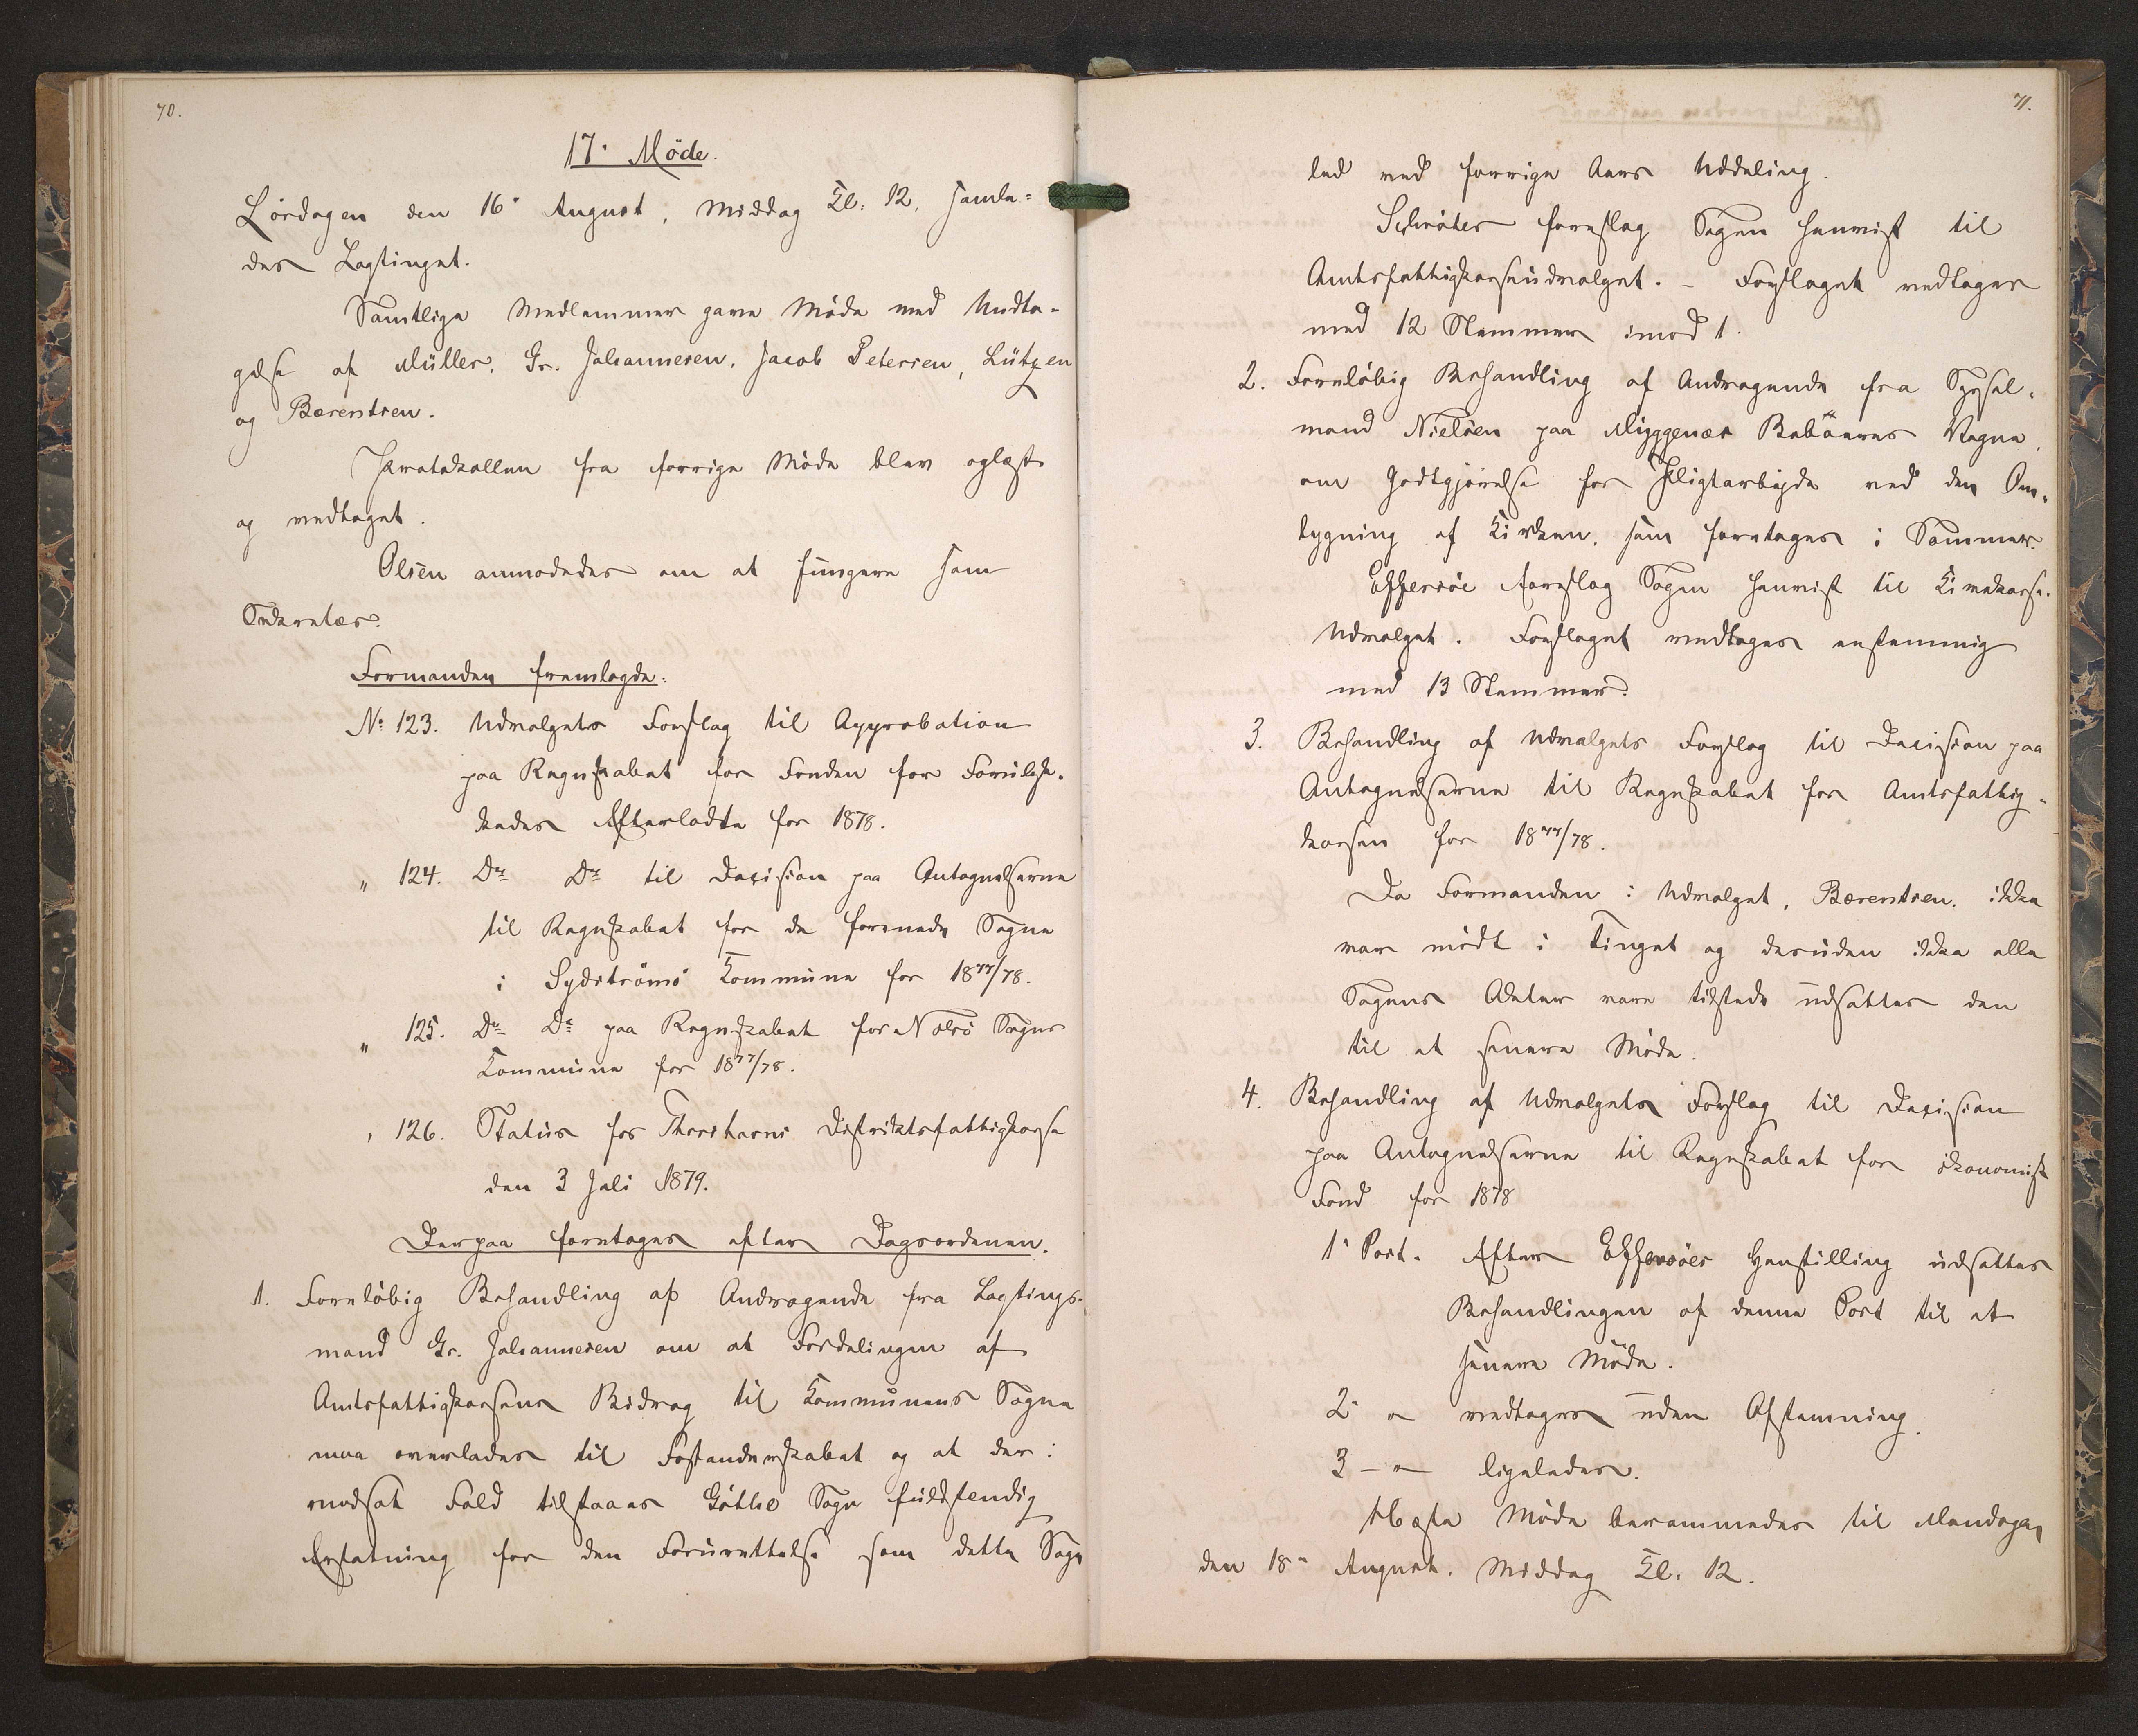 70.
17de Möde.
Lördagen den 16de August, Middag Kl: 12, samle=
des Lagtinget.
Samtlige Medlemmer gave Möde med Undta-
gelse af Müller, Gr. Johannesen, Jacob Petersen, Lützen
og Bærentsen.
Protokollen fra forrige Möde blev oplæst
og vedtaget.
Olsen anmodedes om at fungere som
Sekretær.
Formanden fremlagde:
No 123. Udvalgets Forslag til Approbation
paa Regnskabet for Fonden for Forulyk-
kedes Efterladte for 1878.
" 124. Do Do til Decision paa Antegnelserne
til Regnskabet for de forenede Sogne
i Sydströmö Kommune for 1877/78.
" 125. Do Do paa Regnskabet for Nolsö Sogns
Kommune for 1877/78.
" 126. Status for Thorshavns Distriktsfattigkasse
den 3 Juli 1879.
Derpaa foretoges efter Dagsordenen.
1. Foreløbig Behandling af Andragende fra Lagtings-
mand Gr. Johannesen om at Fordelingen af
Amtsfattigkassens Bidrag til Kommunens Sogne
maa overlades til Forstanderskabet og at der i
modsat Fald tilstaaes Göthe Sogn fuldstendig
Erstatning for den Forurettelse som dette Sogn
71.
led ved forrige Aars Uddeling.
Schrøter foreslog Sagen henvist til
Amtsfattigkasseudvalget. – Forslaget vedtoges
med 12 Stemmer imod 1.
2. Foreløbig Behandling af Andragende fra Syssel-
mand Nielsen paa Myggenæs Beboeres Vegne,
om Godtgjørelse for Pligtarbejde ved den Om-
bygning af Kirken, som foretages i Sommer.
Effersöe foreslog Sagen henvist til Kirkekasse-
Udvalget. Forslaget vedtoges enstemmig
med 13 Stemmer.
3. Behandling af Udvalgets Forslag til Decision paa
Antegnelserne til Regnskabet for Amtsfattig-
kassen for 1877/78.
Da Formanden i Udvalget, Bærentsen, ikke
var mødt i Tinget og desuden ikke alle
Sagens Akter vare tilstede udsattes den
til et senere Möde.
4. Behandling af Udvalgets Forslag til Decision
paa Antegnelserne til Regnskabet for økonomisk
Fond for 1878
1e Post. Efter Effersöes Henstilling udsattes
Behandlingen af denne Post til et
senere Möde.
2e " vedtages uden Afstemning.
3 – " – ligeledes.
Næste Möde berammedes til Mandagen
den 18de August, Middag Kl. 12.